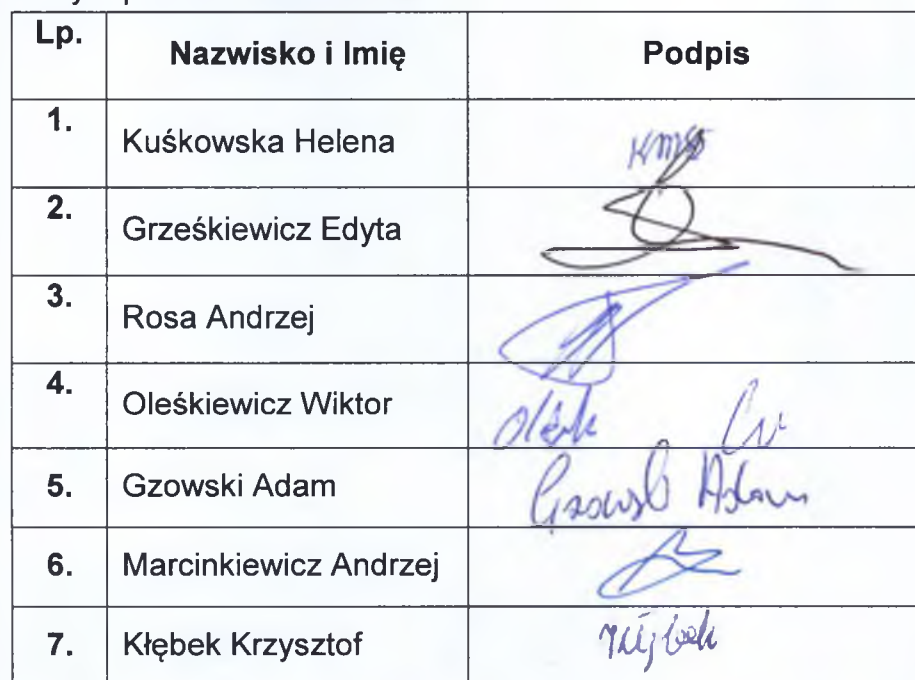 Lp. Nazwisko i Imię Podpis
1. Kuśkowska Helena
2. Grześkiewicz Edyta
3. Rosa Andrzej
4. Oleśkiewicz Wiktor
5. Gzowski Adam Adam
6. Marcinkiewicz Andrzej
7. Kłębek Krzysztof